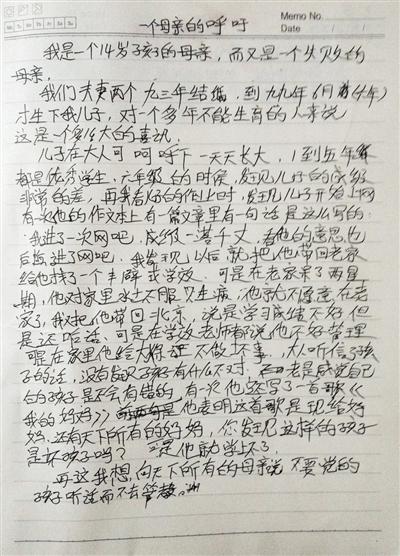 Memo No.
Date / /
一个母亲的呼吁
我是一个14岁孩子的母亲,而又是一个失败的
母亲,
我们夫妻两个九三年结婚,到九九年6月
才生下我儿子,对一个多年不能生育的人来说
这是一个多么大的喜讯.
儿子在大人呵呵呼下一天天长大,1到五年级
都是优秀学生,六年级的时候,发现儿子的成绩
非常的差,再我看他的作业时,发现儿子开始上网
有次他的作文本上有一篇文章里有一句话是这么写的:
我进了一次网吧,成绩一落千丈,看他的意思也
后悔进了网吧.我发现以后就把他带回老家
给他找了一个学校.可是在老家呆了两星
期,他对家里水土不服只生病,他就不愿意在老
家了,我又把他带回北京,说是学习成绩不好但
是还,可是在学校老师都说他不好管理
可是在家里他给大人保证不做坏事,大人听信了孩
子的话,没有发现子有什么不对.老是感觉自己
的孩子是不会有错的,有次他还写了一首歌《
我的妈妈》他表明这首歌是现给妈
妈,还有天下所有的妈妈,你发现这样的孩子
是坏孩子吗?他就学坏了.
再这我想,向天下所有的母亲说不要觉的
孩子听话而不去管教。